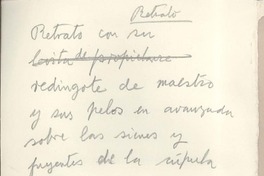 Retrato
Retrato con su
levita de propietario
redingote de maestro
y sus pelos en avanzada
sobre las sienes y
fuyentes de la cúpula